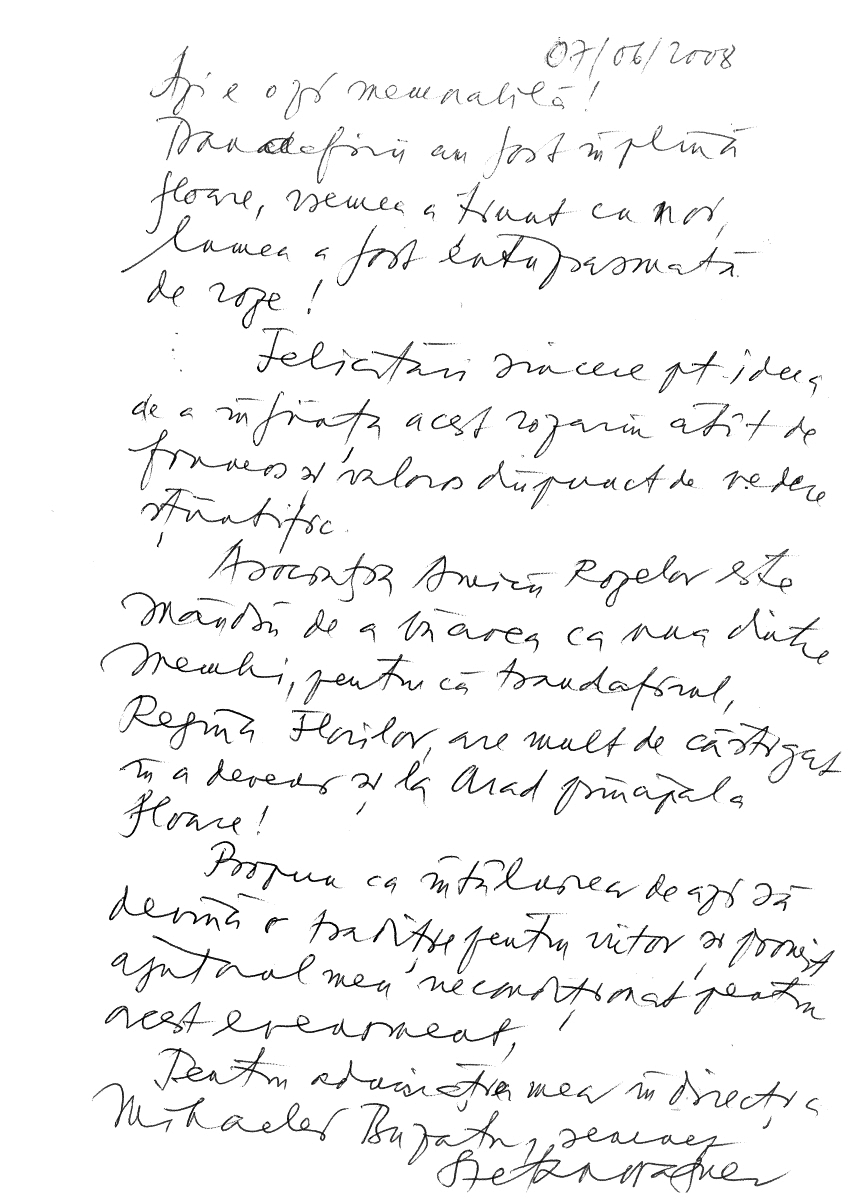 07/06/2008
Azi e o zi memorabilă!
Trandafirii au fost în plină
floare, vremea a ținut cu noi,
lumea a fost entuziasmată
de roze!
Felicitări sincere pt. ideea
de a înființa acest rozariu atît de
frumos și valoros din punct de vedere
științific.
Asociația Amicii Rozelor este
mândră de a vă avea ca una dintre
membri, pentru că trandafirul,
Regina Florilor, are mult de câștigat
în a deveni și la Arad principala
floare!
Propun ca întâlnirea de azi să
devină o tradiție pentru viitor și promit
ajutorul meu necondiționat pentru
acest eveniment,
Pentru admirația mea în direcția
Mihaelei Buzatu, semnez
Ștefan Wagner